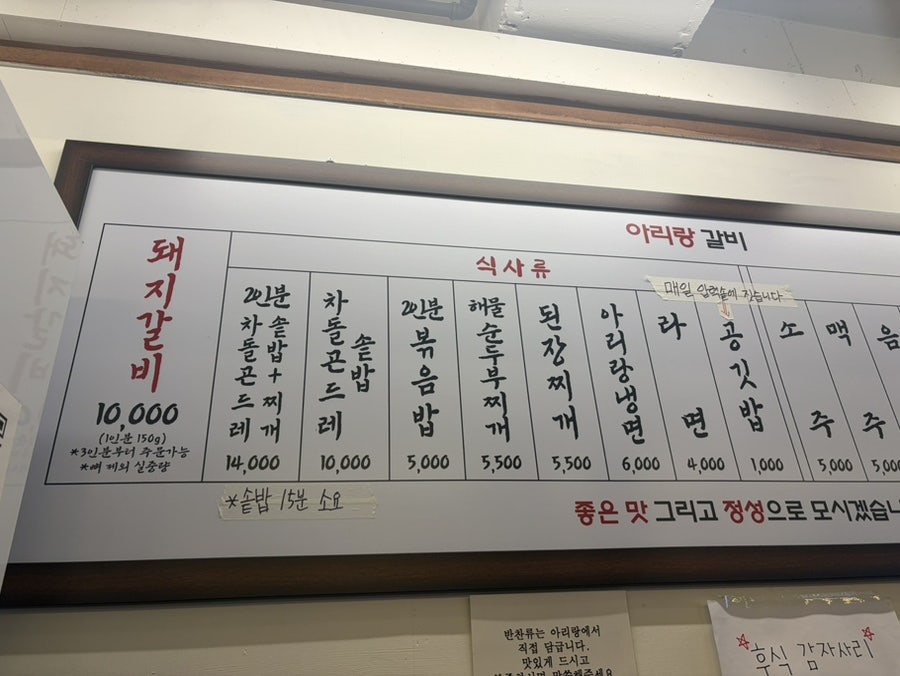 아리랑 갈비
돼지갈비
10,000
(1인분 150g)
*3인분부터 주문가능
*뼈 제외 실중량
식사류
2인분 솥밥+찌개
차돌곤드레
14,000
차돌곤드레
솥밥
10,000
2인분
볶음밥
5,000
해물
순두부찌개
5,500
된장찌개
5,500
아리랑냉면
6,000
라면
4,000
매일 압력솥에 짓습니다
↓
공깃밥
1,000
소주
5,000
맥주
5,000
음
*솥밥 15분 소요
좋은 맛 그리고 정성으로 모시겠습니
반찬류는 아리랑에서
직접 담급니다.
맛있게 드시고
☆후식 감자사리☆